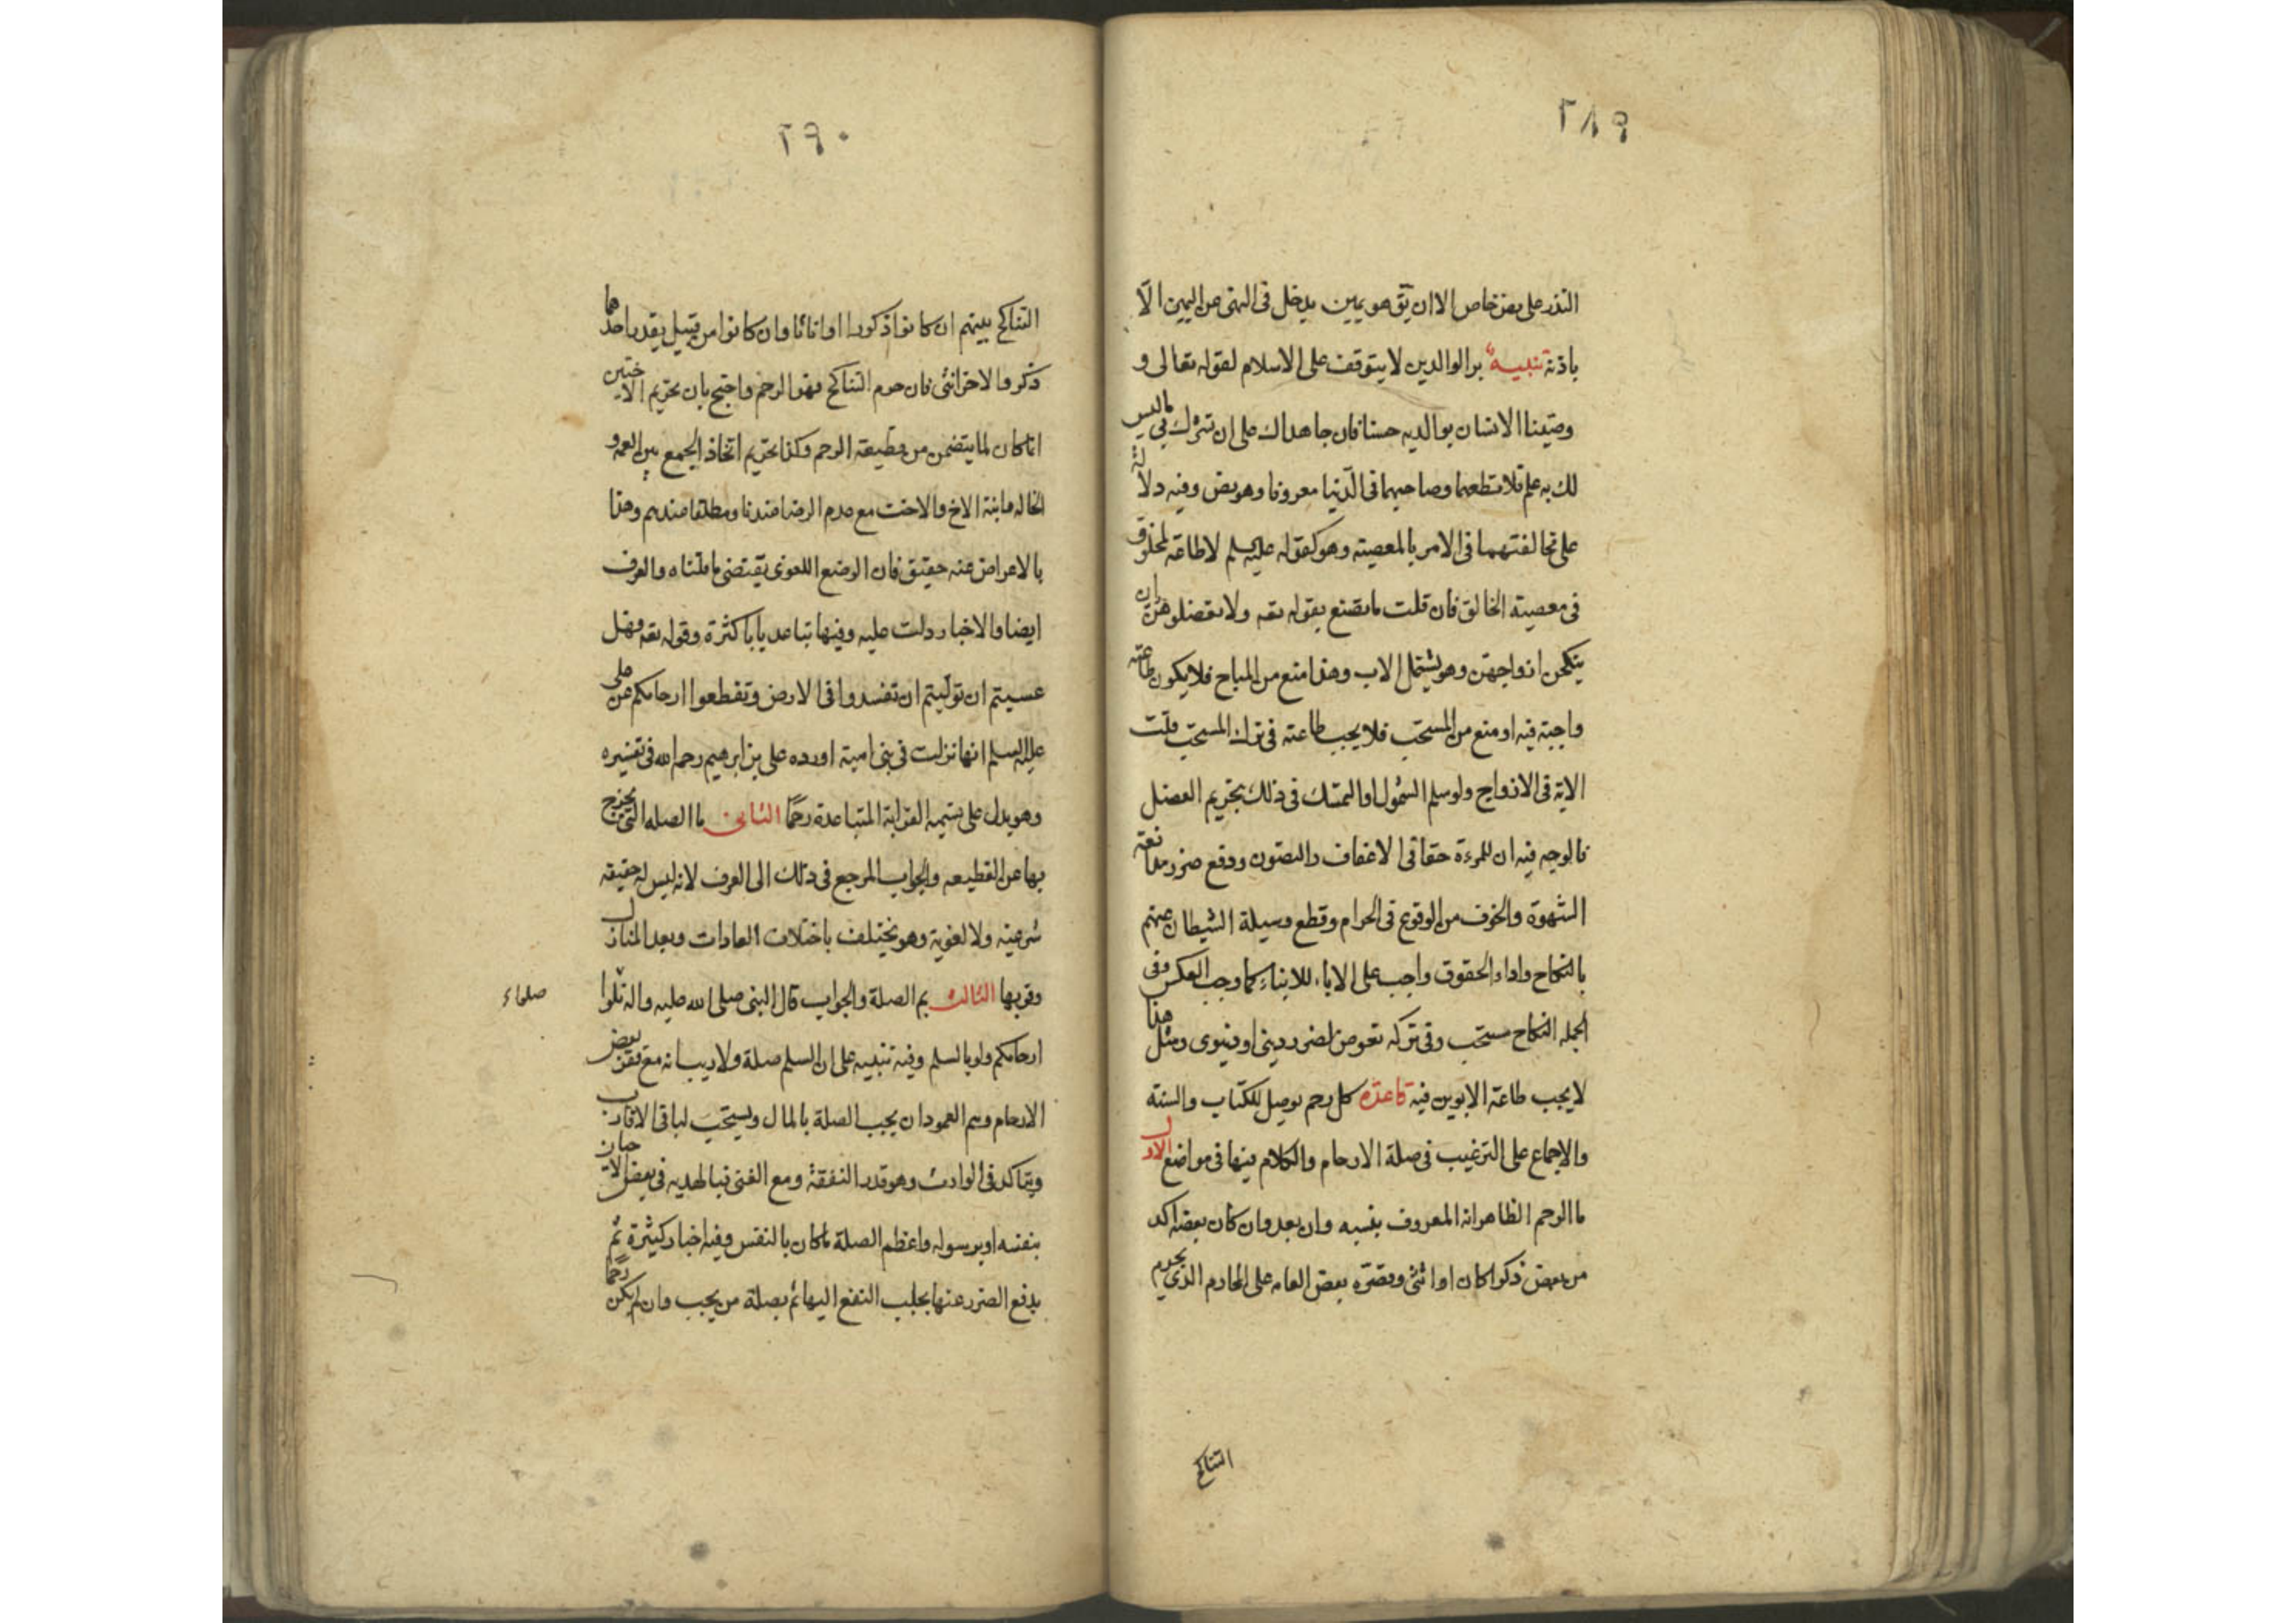 ٢٨٩
النذر على نص خاص الا ان يق هو يمين يدخل فى النهى عن اليمين الّا
باذنه تنبيه بر الوالدين لا يتوقف على الاسلام لقوله تعالى و
وصّينا الانسان بوالديه حسنا فان جاهداك على ان تشرك بى ماليس
لك به علم فلا تطعهما وصاحبهما فى الدّنيا معروفا وهو نص وفيه دلالة
على مخالفتهما فى الامر بالمعصيته وهو كقوله عليه السلم لا طاعة لمخلوق
فى معصيته الخالق فان قلت ما تصنع بقوله تعه ولا تعضلوهن ان
ينكحن ازواجهن وهو يشتمل الاب وهذا منع من المباح فلا يكون طاعته
واجبة فيه او منع من المستحب فلا يجب طاعته فى ترك المستحب قلت
الاية فى الازواج ولو سلم الشمول او التمسك فى ذلك بتحريم العضل
فالوجه فيه ان للمرءة حقا فى الاعفاف والتصون ودفع ضرر مدافعة
الشهوة والخوف من الوقوع فى الحرام وقطع وسيلة الشيطان عنهم
بالنكاح واداء الحقوق واجب على الاباء للابناء كما وجب العكس وفى
الجمله النكاح مستحب وفى تركه تعرض لضرر دينى او دنيوى ومثل هذا
لا يجب طاعة الابوين فيه قاعدة كل رحم يوصل للكتاب والسنه
والاجماع على الترغيب فى صلة الارحام والكلام فيها فى مواضع الاول
ما الرحم الظاهر انه المعروف بنسبه وان بعد وان كان بعضه اكد
من بعض ذكرا كان او انثى وقصره بعض العامه على المحارم الذى يحرم
التناكح
٢٩٠
التناكح بينهم ان كانوا ذكورا او اناثا وان كانوا من قبيل يقدر احدهما
ذكر والاخر انثى فان حرم التناكح فهو الرحم واحتج بان تحريم الاختين
انما كان لما يتضمن من قطيعة الرحم وكذا تحريم اتخاذ الجمع بين العمه و
الخاله وابنة الاخ والاخت مع عدم الرضا عندنا ومطلقا عندهم وهذا
بالاعراض عنه حقيق فان الوضع اللغوى يقتضى ما قلناه والعرف
ايضا والاخبار دلت عليه وفيها تباعد بابا كثرة وقوله تعه فهل
عسيتم ان توليتم ان تفسدوا فى الارض وتقطعوا ارحامكم عن على
عليه السلم انها نزلت فى بنى امية اورده على بن ابرهيم رحمه الله فى تفسيره
وهو يدل على تسميه القرابة المتباعدة رحمًا الثانى ما الصله التى يخرج
بها عن القطيعه والجواب المرجع فى ذلك الى العرف لانه ليس له حقيقه
شرعيته ولا لغوية وهو يختلف باختلاف العادات وبعد المنازل
وقربها الثالث بم الصلة والجواب قال النبى صلى الله عليه واله بلوا
ارحامكم ولو بالسلم وفيه تنبيه على ان السلم صلة ولا ريب انه مع فقر بعض
الارحام وهم العمودان يجب الصلة بالمال ويستحب لباقى الاقارب
ويتاكد فى الوارث وهو قدر النفقة ومع الغنى فبالهديه فى بعض الاحيان
بنفسه او برسوله واعظم الصلة ماكان بالنفس وفيه اخبار كثيرة ثم
بدفع الضرر عنها بجلب النفع اليها ثم بصلة من يجب وان لم يكن رحما